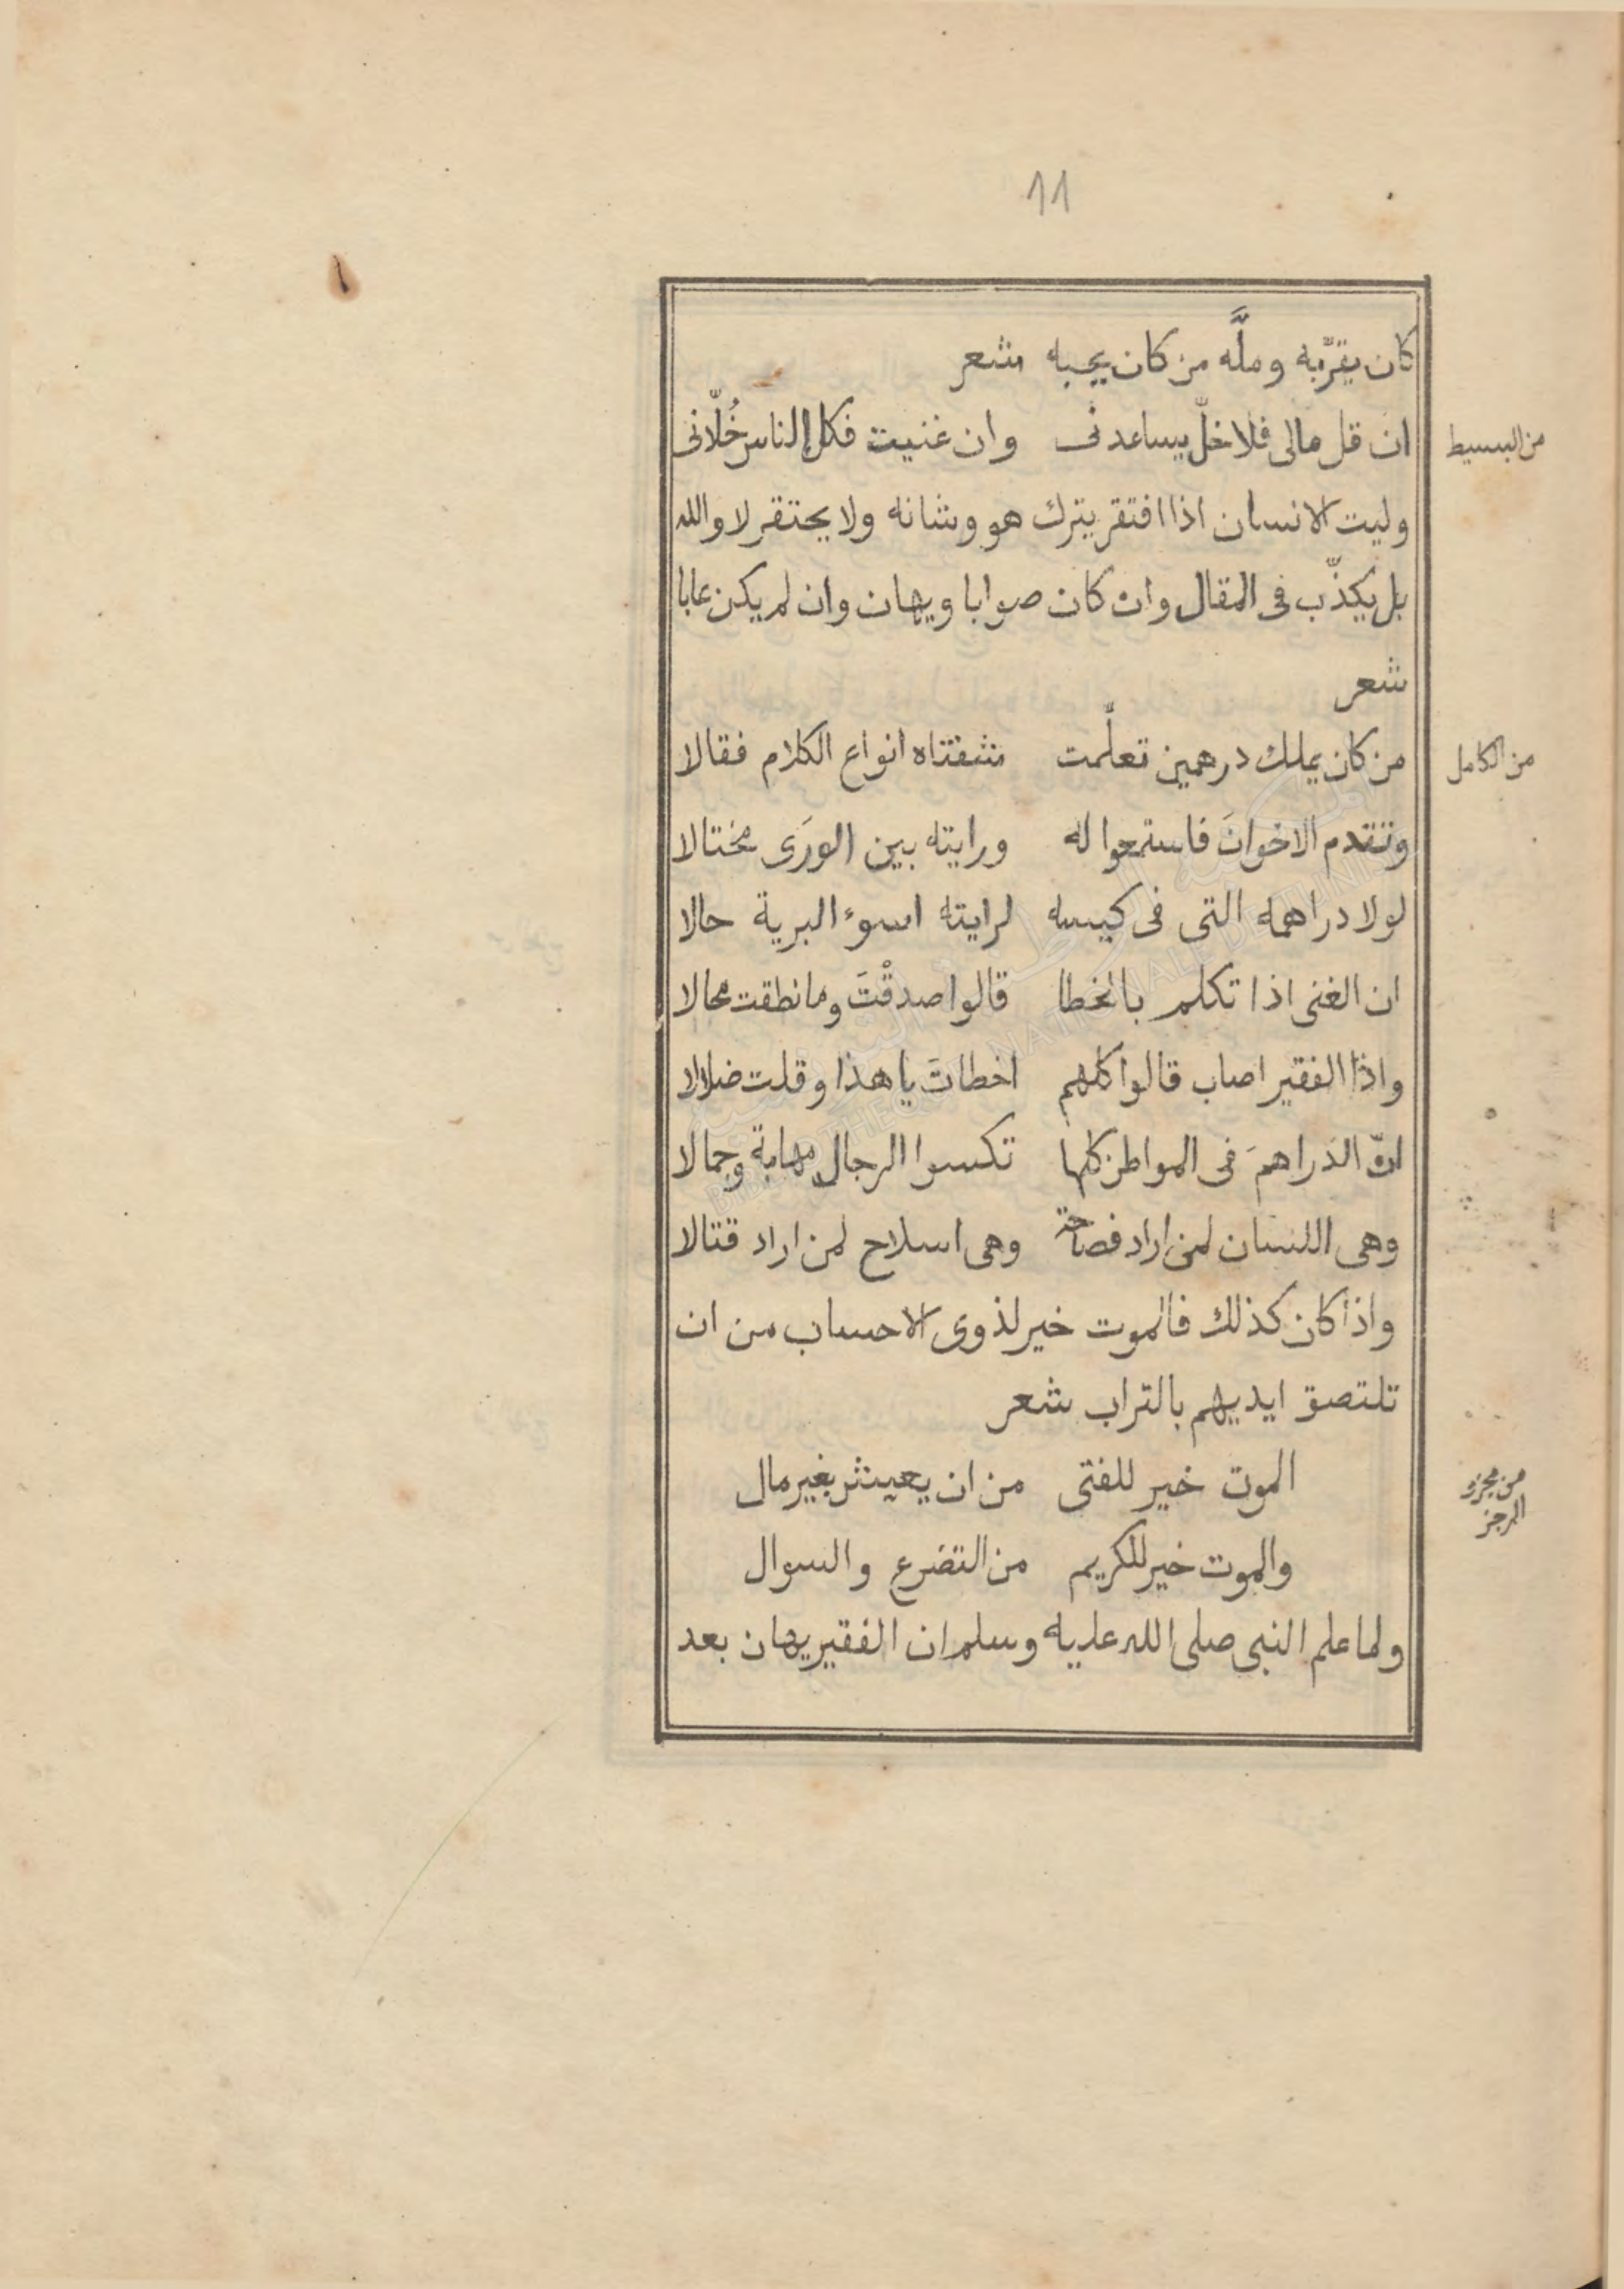 11
كان يقرّبه وملَّه من كان يحبه شعر
ان قل مالى فلا خلّ يساعدنى وان غنيت فكل الناس خُلّانى
من البسيط
وليت الانسان اذا افتقر يترك هو وشانه ولا يحتقر لا والله
بل يكذّب فى المقال وان كان صوابا ويهان وان لم يكن عابا
شعر
من كان يملك درهمين تعلّمت شفتاه انواع الكلام فقالا
من الكامل
وتقدم الاخوانَ فاستمعوا له ورايته بين الورَى مختالا
لولا دراهمه التى فى كيسه لرايته اسوء البرية حالا
ان الغنى اذا تكلم بالخطا قالوا صدقْتَ وما نطقت محالا
واذا الفقير اصاب قالوا كلهم اخطاتَ يا هذا وقلت ضلالا
انّ الدَراهمَ فى المواطن كلها تكسوا الرجال مهابة وجمالا
وهى اللسان لمن اراد فصاحة وهى اسلاح لمن اراد قتالا
واذا كان كذلك فالموت خير لذوى الاحساب من ان
تلتصق ايديهم بالتراب شعر
الموت خير للفتى من ان يعيش بغير مال
من مجزو
الرجز
والموت خير للكريم من التضرع والسوال
ولما علم النبى صلى الله عليه وسلم ان الفقير يهان بعد